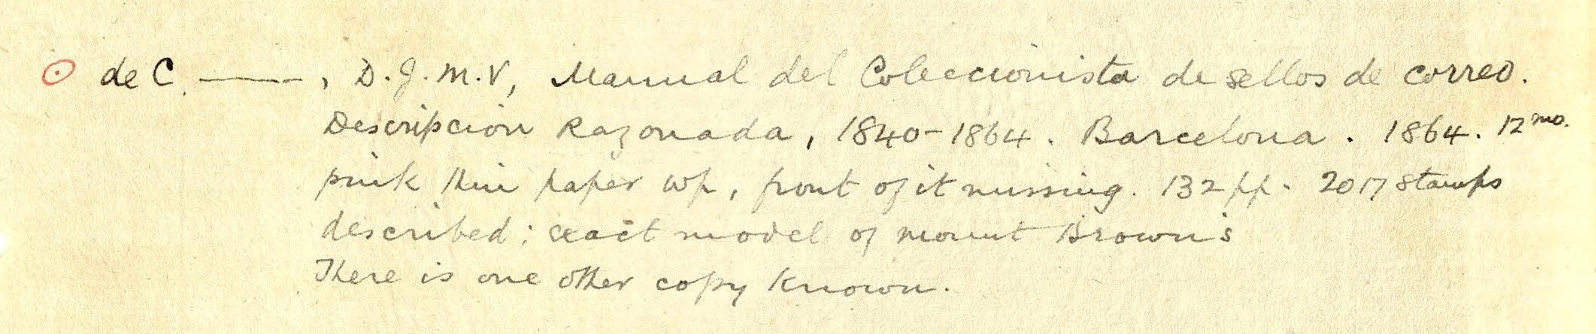 de C. ——, D.J.M.V, Manual del Coleccionista de sellos de correo.
Descripcion Razonada, 1840-1864. Barcelona. 1864. 12mo.
pink thin paper wp, front of it missing. 132 pp. 2017 stamps
described: exact model of mount Brown's
There is one other copy known.